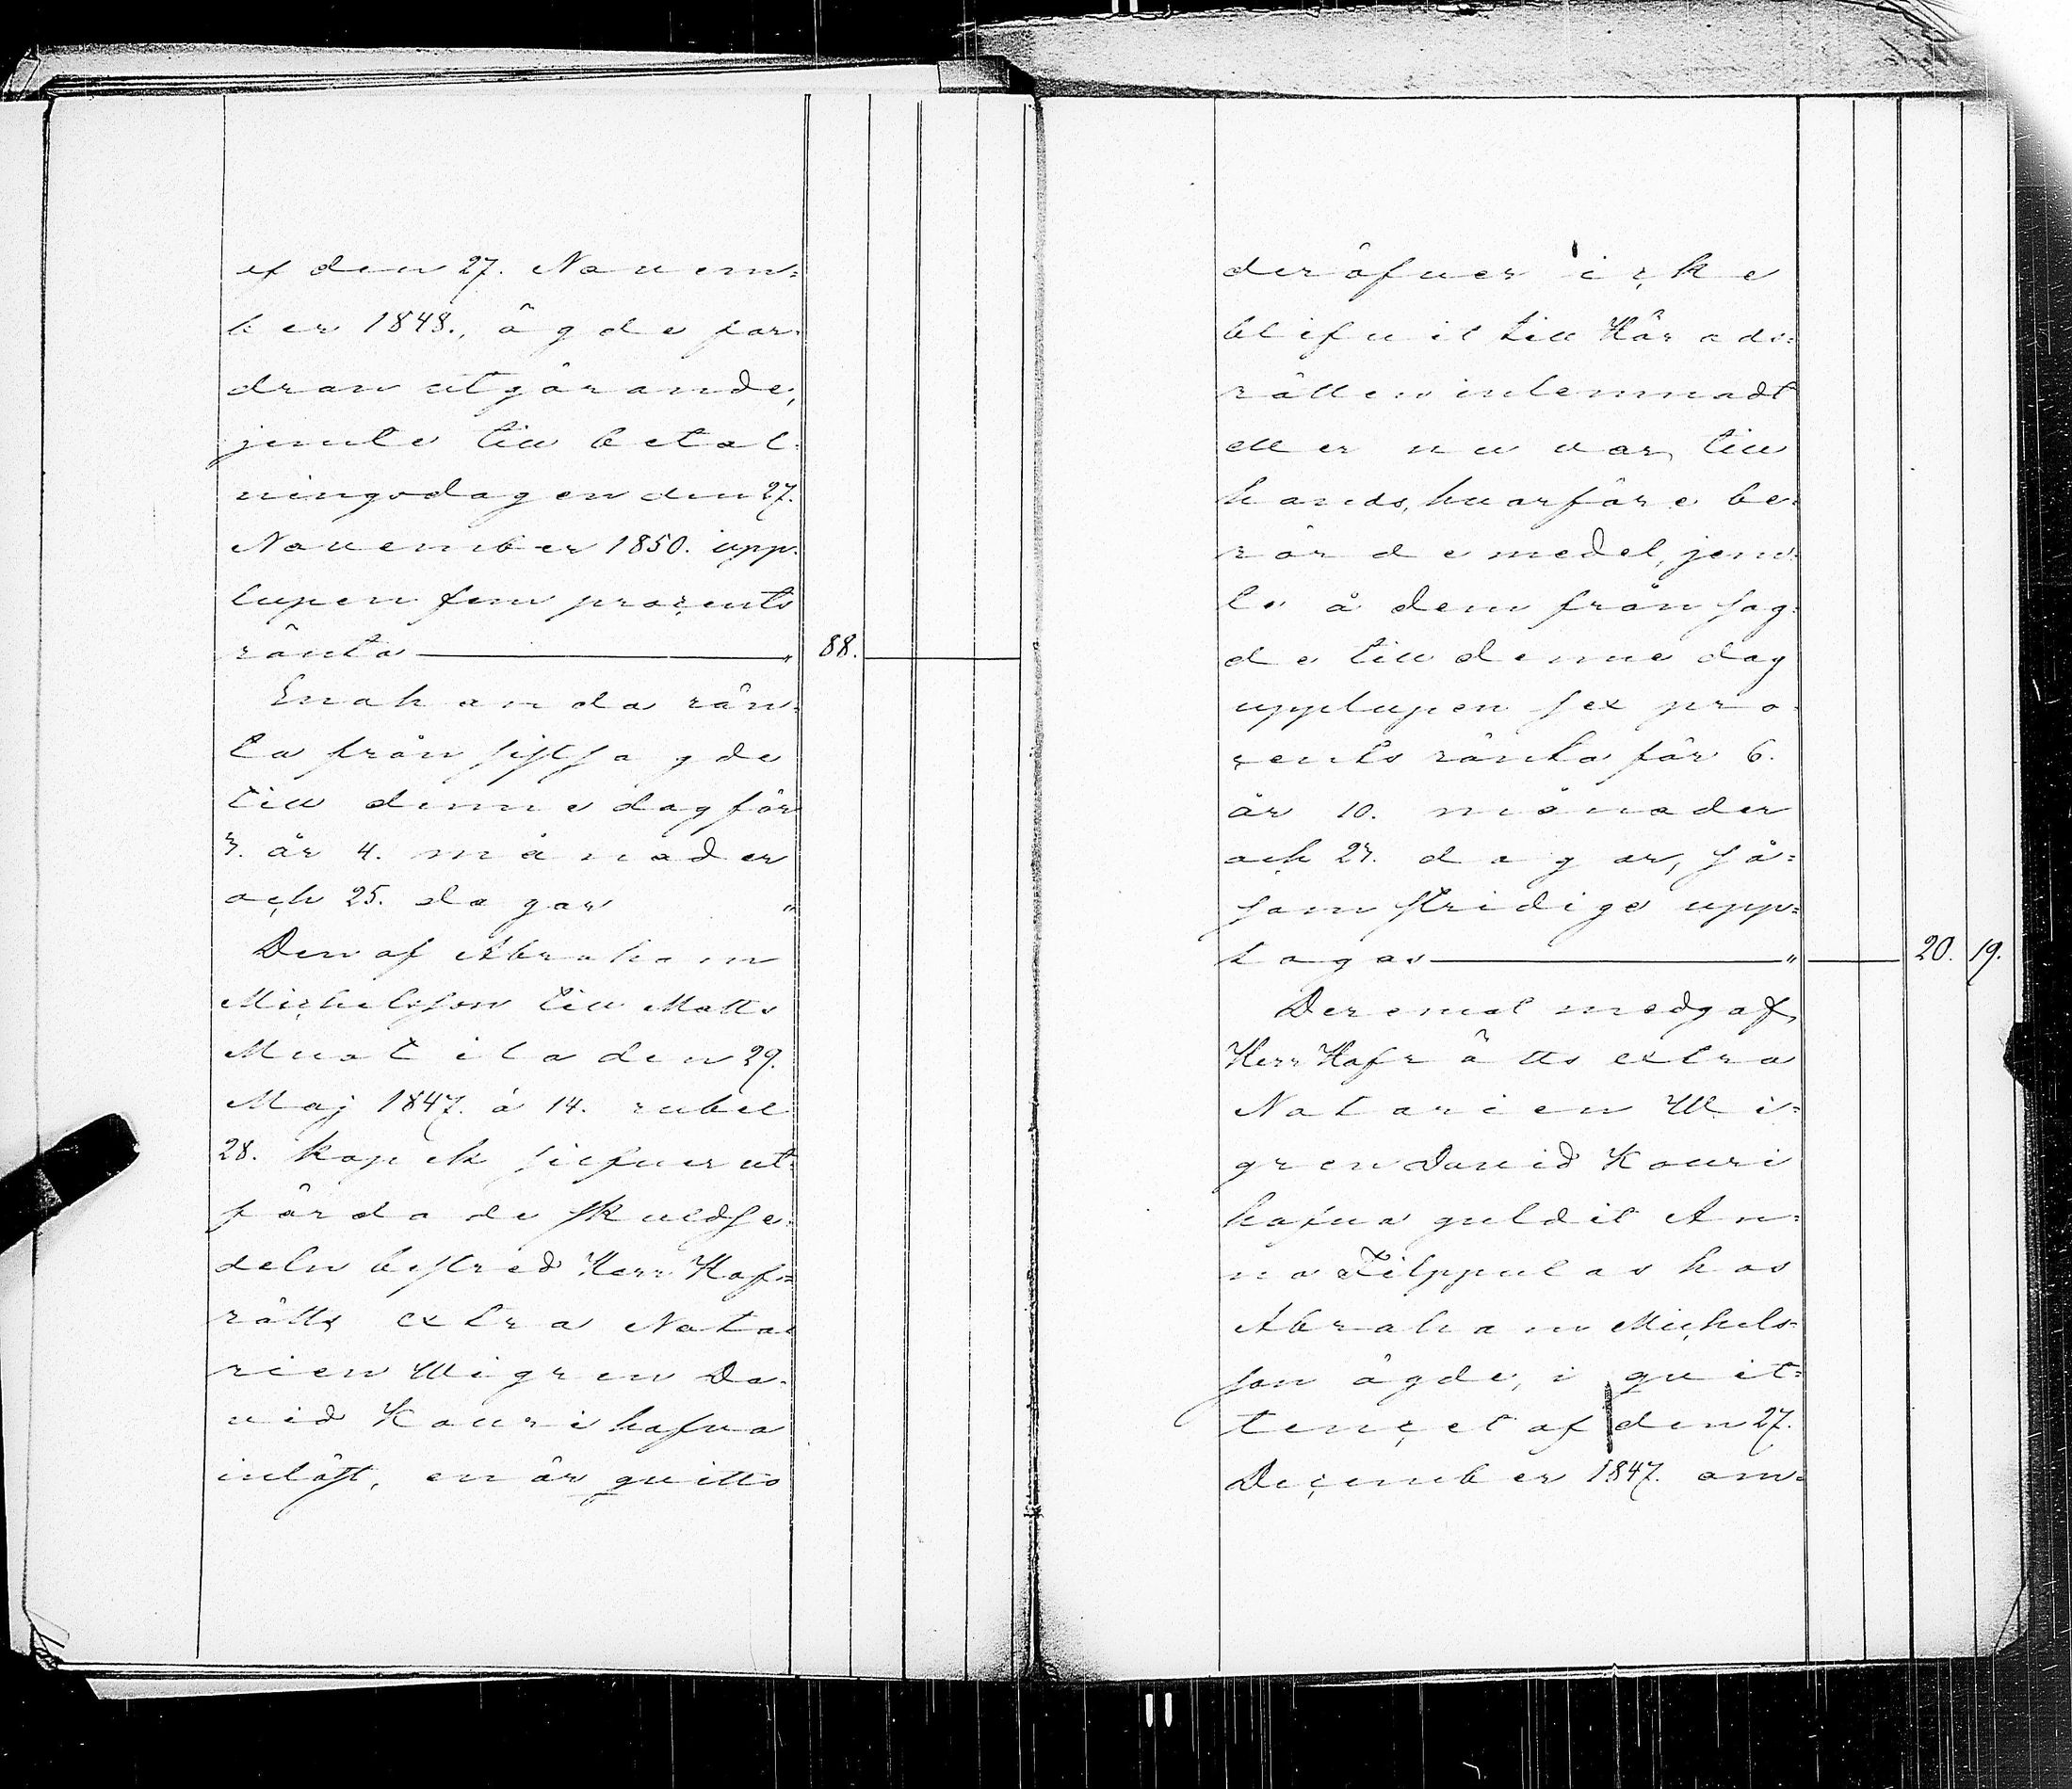 af den 27. Novem=
ber 1848., ägde for=
dran utgörande,
jemte till betal=
ningsdagen den 27.
November 1850. upp=
lupen fem procents
ränta " 88.
Enahanda rän=
ta från sistsagde
till denne dag för
3. år 4. månader
och 25. dagar "
Den af Abraham
Michelsson till Matts
Muotila den 29.
Maj 1847. å 14. rubel
28. kopek silfver ut=
färdade skuldse=
deln bestred Herr Hof=
rätts extra Nota=
rien Wigren Da=
vid Kouri hafva
inlöst, enär quitto
deröfver icke
blifvit till Härads=
rätten inlemnadt
eller nu var till
hands, hvarföre be=
rörde medel, jem=
te å dem från sag=
de till denne dag
upplupen sex pro=
cents ränta för 6.
år 10. månader
och 27. dagar, så=
som stridige upp=
tagas " 20. 19.
Deremot medgaf,
Herr Hofrätts extra
Notarien Wi=
gren David Kouri
hafva guldit An=
na Filppulas hos
Abraham Michels=
son ägde, i quit=
tencet af den 27.
December 1847. om=